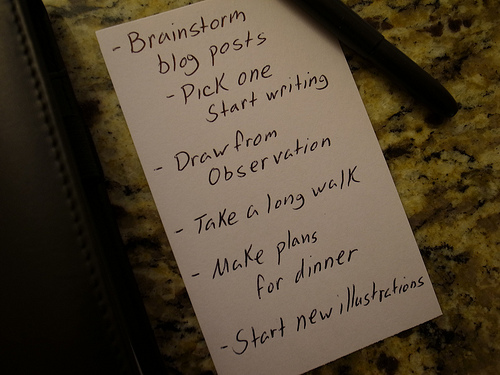 - Brainstorm
blog posts
- Pick one
Start writing
- Draw from
Observation
- Take a long walk
- Make plans
for dinner
- Start new illustrations